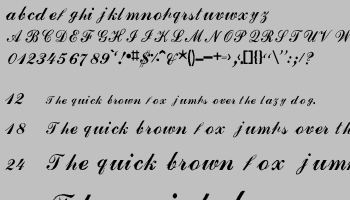 abcdefghijklmnopqrstuvwxyz
ABCDEFGHIJKLMNOPQRSTUVW
0123456789
12 The quick brown fox jumps over the lazy dog.
18 The quick brown fox jumps over the
24 The quick brown fox jum